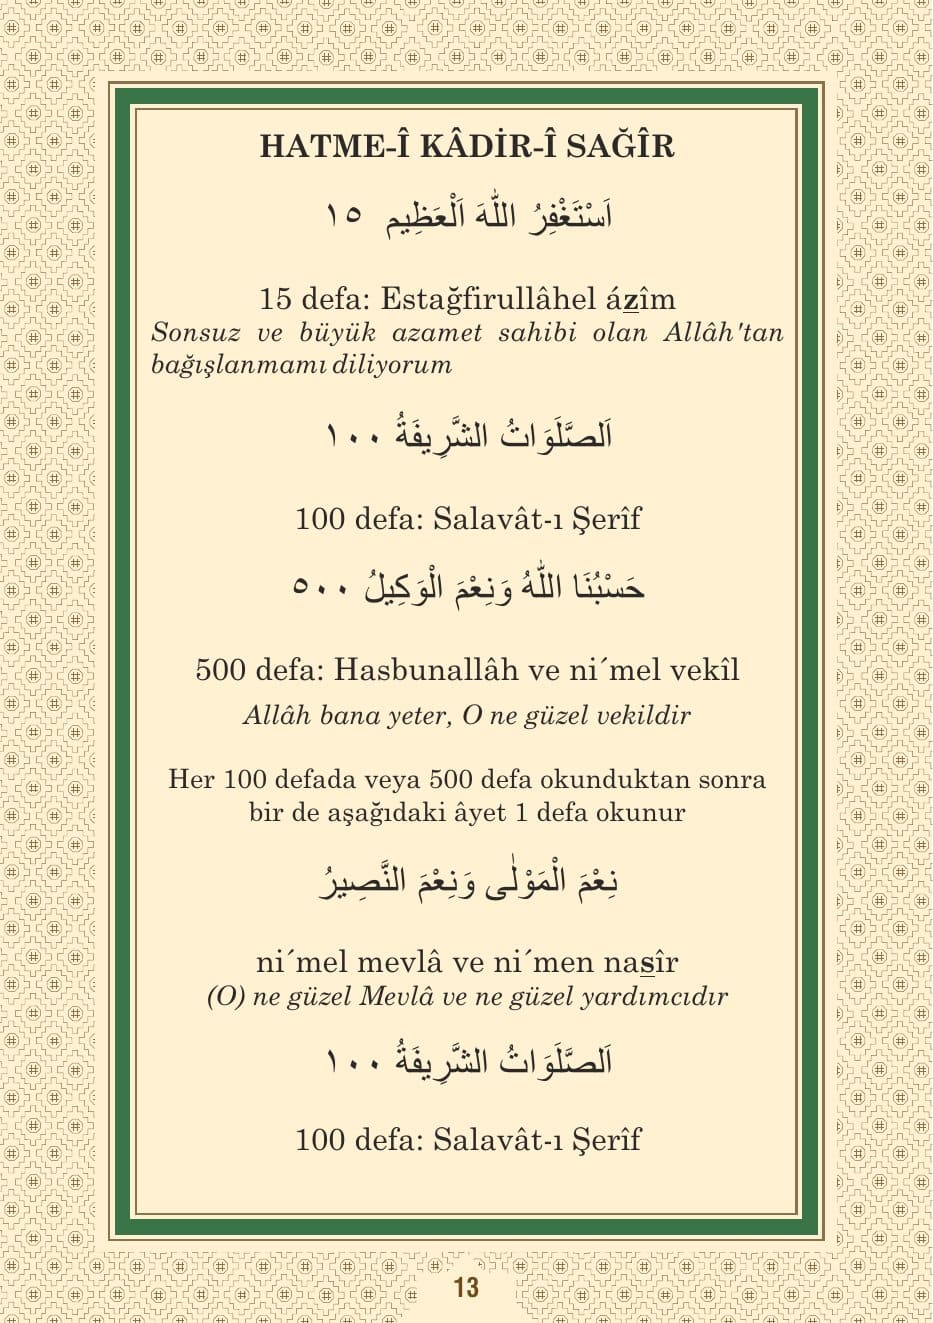 HATME-Î KÂDİR-Î SAĞÎR
اَسْتَغْفِرُ اللّٰهَ اَلْعَظِيم ١٥
15 defa: Estağfirullâhel ázîm
Sonsuz ve büyük azamet sahibi olan Allâh'tan
bağışlanmamı diliyorum
اَلصَّلَوَاتُ الشَّرِيفَةُ ١٠٠
100 defa: Salavât-ı Şerîf
حَسْبُنَا اللّٰهُ وَنِعْمَ الْوَكِيلُ ٥٠٠
500 defa: Hasbunallâh ve ni´mel vekîl
Allâh bana yeter, O ne güzel vekildir
Her 100 defada veya 500 defa okunduktan sonra
bir de aşağıdaki âyet 1 defa okunur
نِعْمَ الْمَوْلٰى وَنِعْمَ النَّصِيرُ
ni´mel mevlâ ve ni´men nasîr
(O) ne güzel Mevlâ ve ne güzel yardımcıdır
اَلصَّلَوَاتُ الشَّرِيفَةُ ١٠٠
100 defa: Salavât-ı Şerîf
13